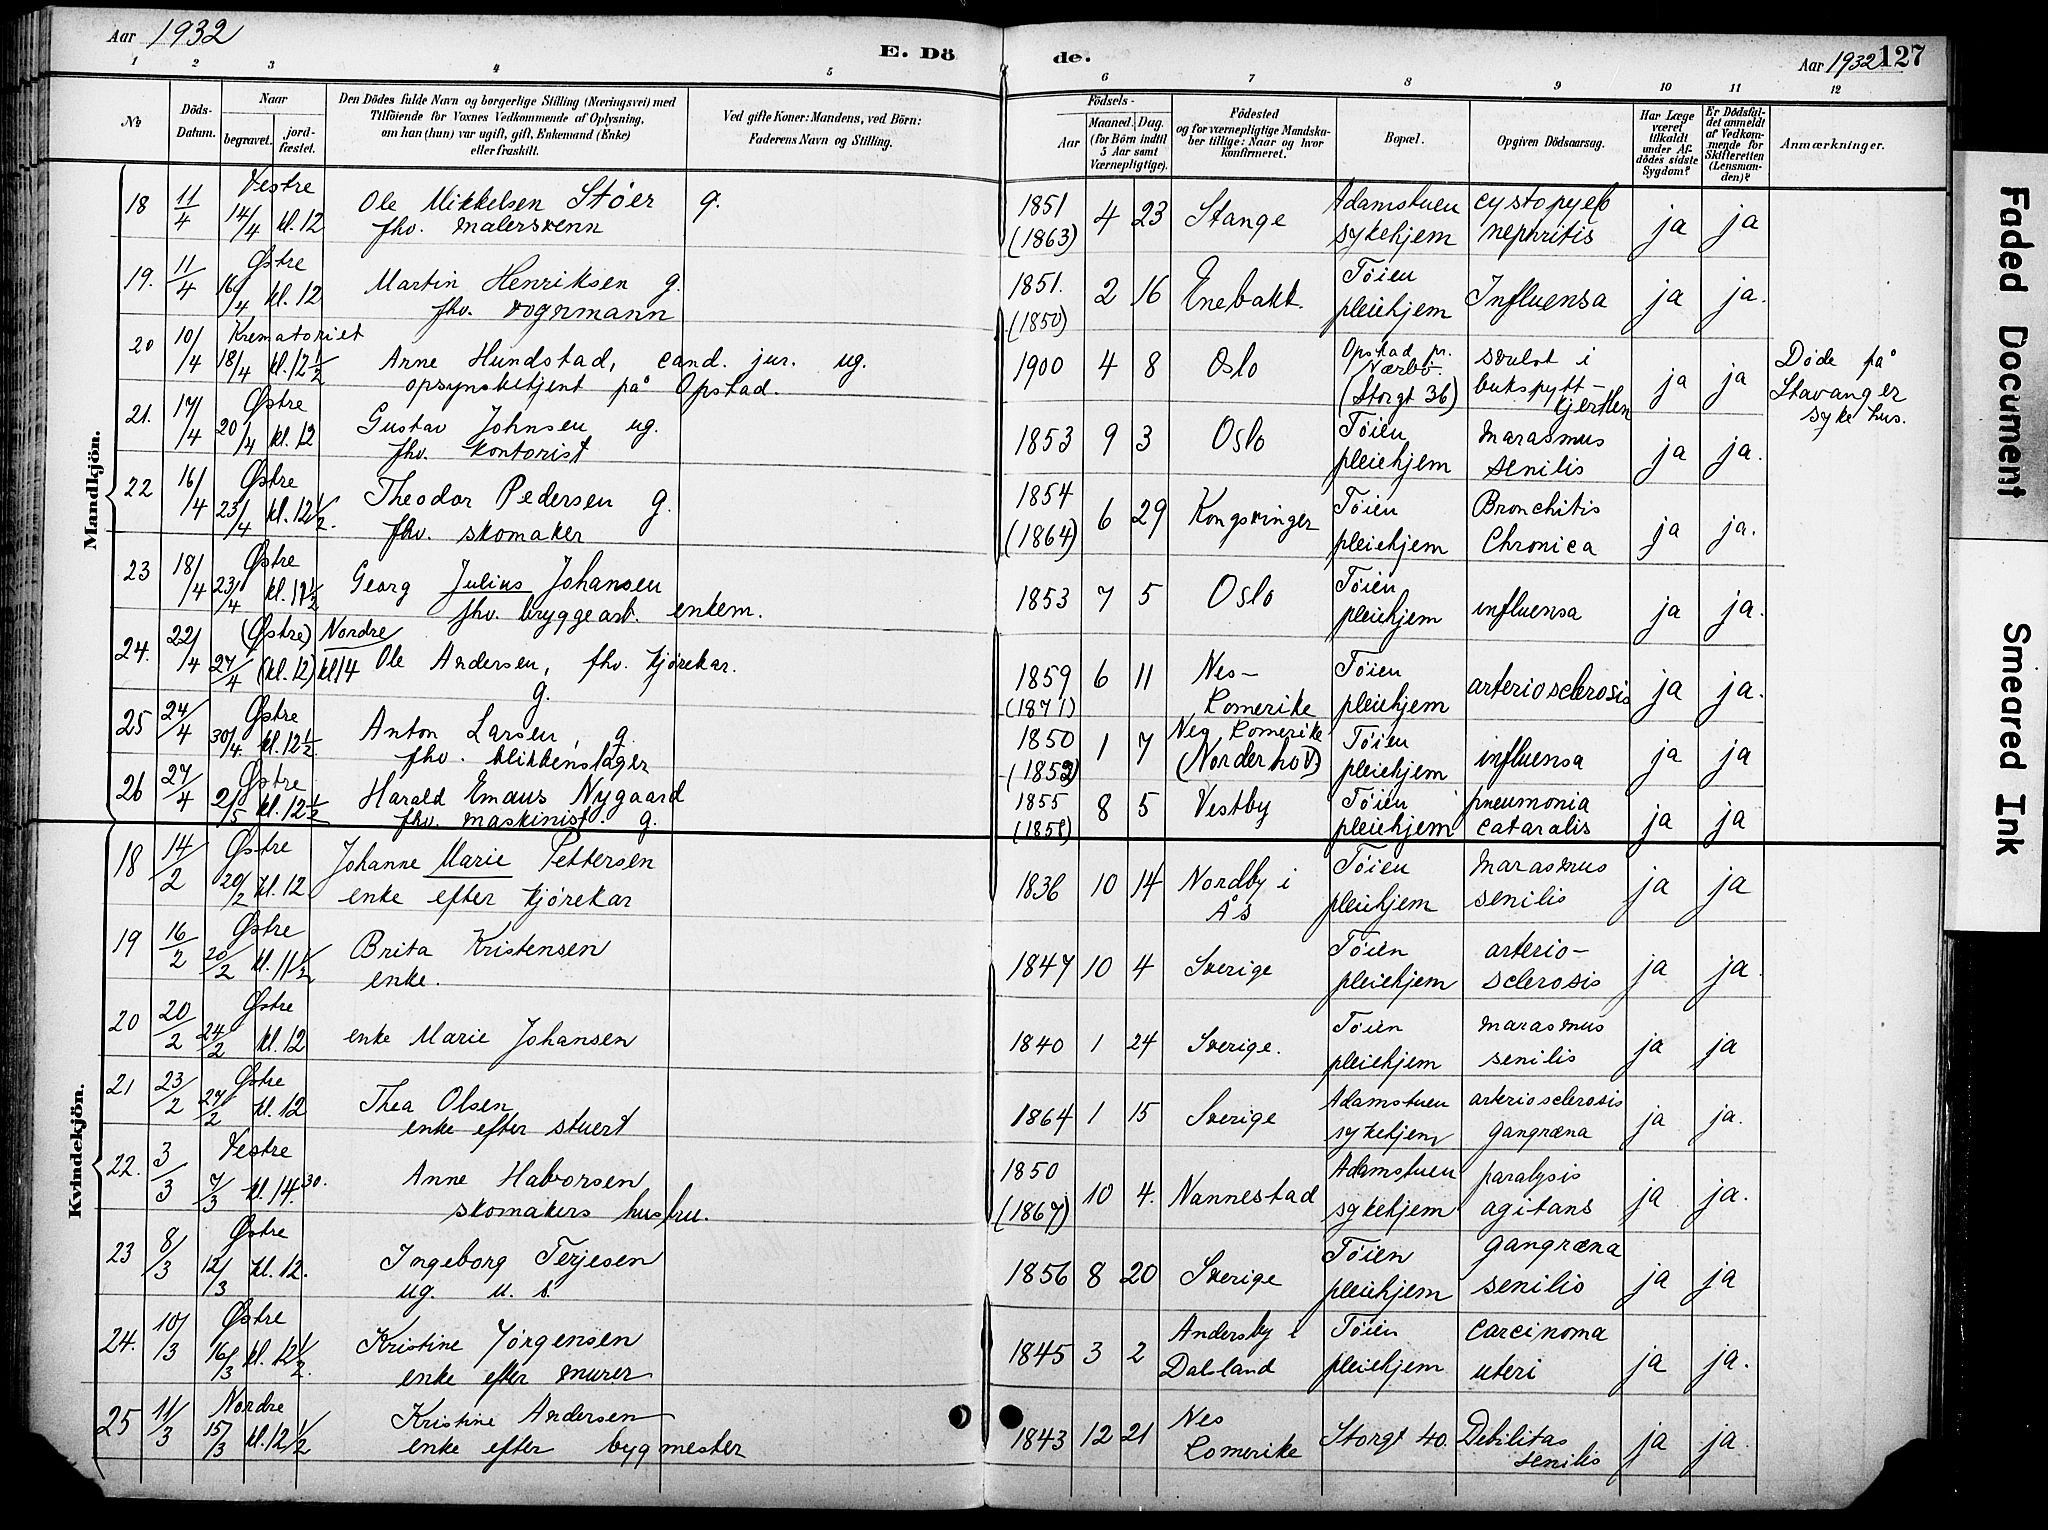 Aar 1932
E. Dö
de.
Aar 1932
127
1 2 3 4 5 6 7 8 9 10 11 12
№
Döds-
Datum.
Naar
begravet.
jord-
fæstet.
Den Dödes fulde Navn og borgerlige Stilling (Næringsvei) med
Tilföiende for Voxnes Vedkommende af Oplysning,
om han (hun) var ugift, gift, Enkemand (Enke)
eller fraskilt.
Ved gifte Koner: Mandens, ved Börn:
Faderens Navn og Stilling.
Födsels-
Aar
Maaned. Dag.
(for Börn indtil
5 Aar samt
Værnepligtige).
Födested
og for værnepligtige Mandska-
ber tillige: Naar og hvor
konfirmeret.
Bopæl.
Opgiven Dödsaarsag.
Har Læge
været
tilkaldt
under Af-
dödes sidste
Sygdom?
Er Dödsfal-
det anmeldt
af Vedkom-
mende for
Skifteretten
(Lensman-
den)?
Anmærkninger.
Mandkjön.
18 11/4 Vestre 14/4 kl. 12 Ole Mikkelsen Støer g.
fhv. malersvenn
1851 (1863) 4 23 Stange Adamstuen sykehjem cystopyelo nephritis ja ja
19. 11/4 Østre 16/4 kl. 12 Martin Henriksen g.
fhv. vognmann
1851. (1850) 2 16 Enebakk Tøien pleiehjem Influensa ja ja.
20 10/4 Krematoriet 18/4 kl. 12 1/2 Arne Hundstad, cand. jur. ug.
opsynsbetjent på Opstad.
1900 4 8 Oslo Opstad pr. Nærbö. (Storgt 36) svulst i bukspytt-kjertlen ja ja Døde på Stavanger sykehus.
21. 17/4 Østre 20/4 kl. 12 Gustav Johnsen ug.
fhv. kontorist
1853 9 3 Oslo Tøien pleiehjem marasmus senilis ja ja.
22 16/4 Østre 23/4 kl. 12 1/2. Theodor Pedersen g.
fhv. skomaker
1854 (1864) 6 29 Kongsvinger Tøien pleiehjem Bronchitis Chronica ja ja.
23 18/4 Østre 23/4 kl. 11 1/2 Georg Julius Johansen
fhv. bryggearb. enkem.
1853 7 5 Oslo Tøien pleiehjem influensa ja ja.
24. 22/4 (Østre) Nordre 27/4 (kl. 12) kl 14 Ole Andersen, fhv. kjørekar.
g.
1859 (1871) 6 11 Nes-Romerike Tøien pleiehjem arteriosclerosis ja ja.
25 24/4 Østre 30/4. kl. 12 1/2 Anton Larsen, g.
fhv. blikkenslager
1850 (1852) 1 7 Nes Romerike (Norderhov) Tøien pleiehjem influensa ja ja
26 27/4 Østre 2/5 kl. 12 1/2 Harald Emaus Nygaard
fhv. maskinist. g.
1855 (1858) 8 5 Vestby Tøien pleiehjem pneumonia cataralis ja ja
Kvindekjön.
18 14/2 Østre 20/2 kl. 12 Johanne Marie Pettersen
enke efter kjørekar
1836 10 14 Nordby i Ås Tøien pleiehjem marasmus senilis ja ja
19 16/2 Østre 20/2 kl. 11 1/2 Brita Kristensen
enke.
1847 10 4 Sverige Tøien pleiehjem arterio-sclerosis ja ja
20 20/2 Østre 24/2 kl. 12 enke Marie Johansen
1840 1 24 Sverige. Tøien pleiehjem marasmus senilis ja ja
21 23/2 Østre 27/2 kl. 12 Thea Olsen
enke efter stuert
1864 1 15 Sverige Adamstuen sykehjem arteriosclerosis gangræna ja ja.
22. 3/3 Vestre 7/3 kl. 14.30. Anne Halvorsen
skomakers hustru.
1850 (1867) 10 4. Nannestad Adamstuen sykehjem paralysis agitans ja ja.
23 8/3 Østre 12/3 kl. 12. Ingeborg Terjesen
ug. u. s.
1856 8 20 Sverige Tøien pleiehjem gangræna senilis ja ja
24. 10/3 Østre 16/3 kl. 12 1/2. Kristine Jørgensen
enke efter murer
1845 3 2 Andersby i Dalsland Tøien pleiehjem carcinoma uteri ja ja.
25 11/3 Nordre 15/3 kl. 12 1/2 Kristine Andersen
enke efter bygmester
1843 12 21 Nes Romerike Storgt 40. Debilitas senilis ja ja.
Faded Document
Smeared Ink